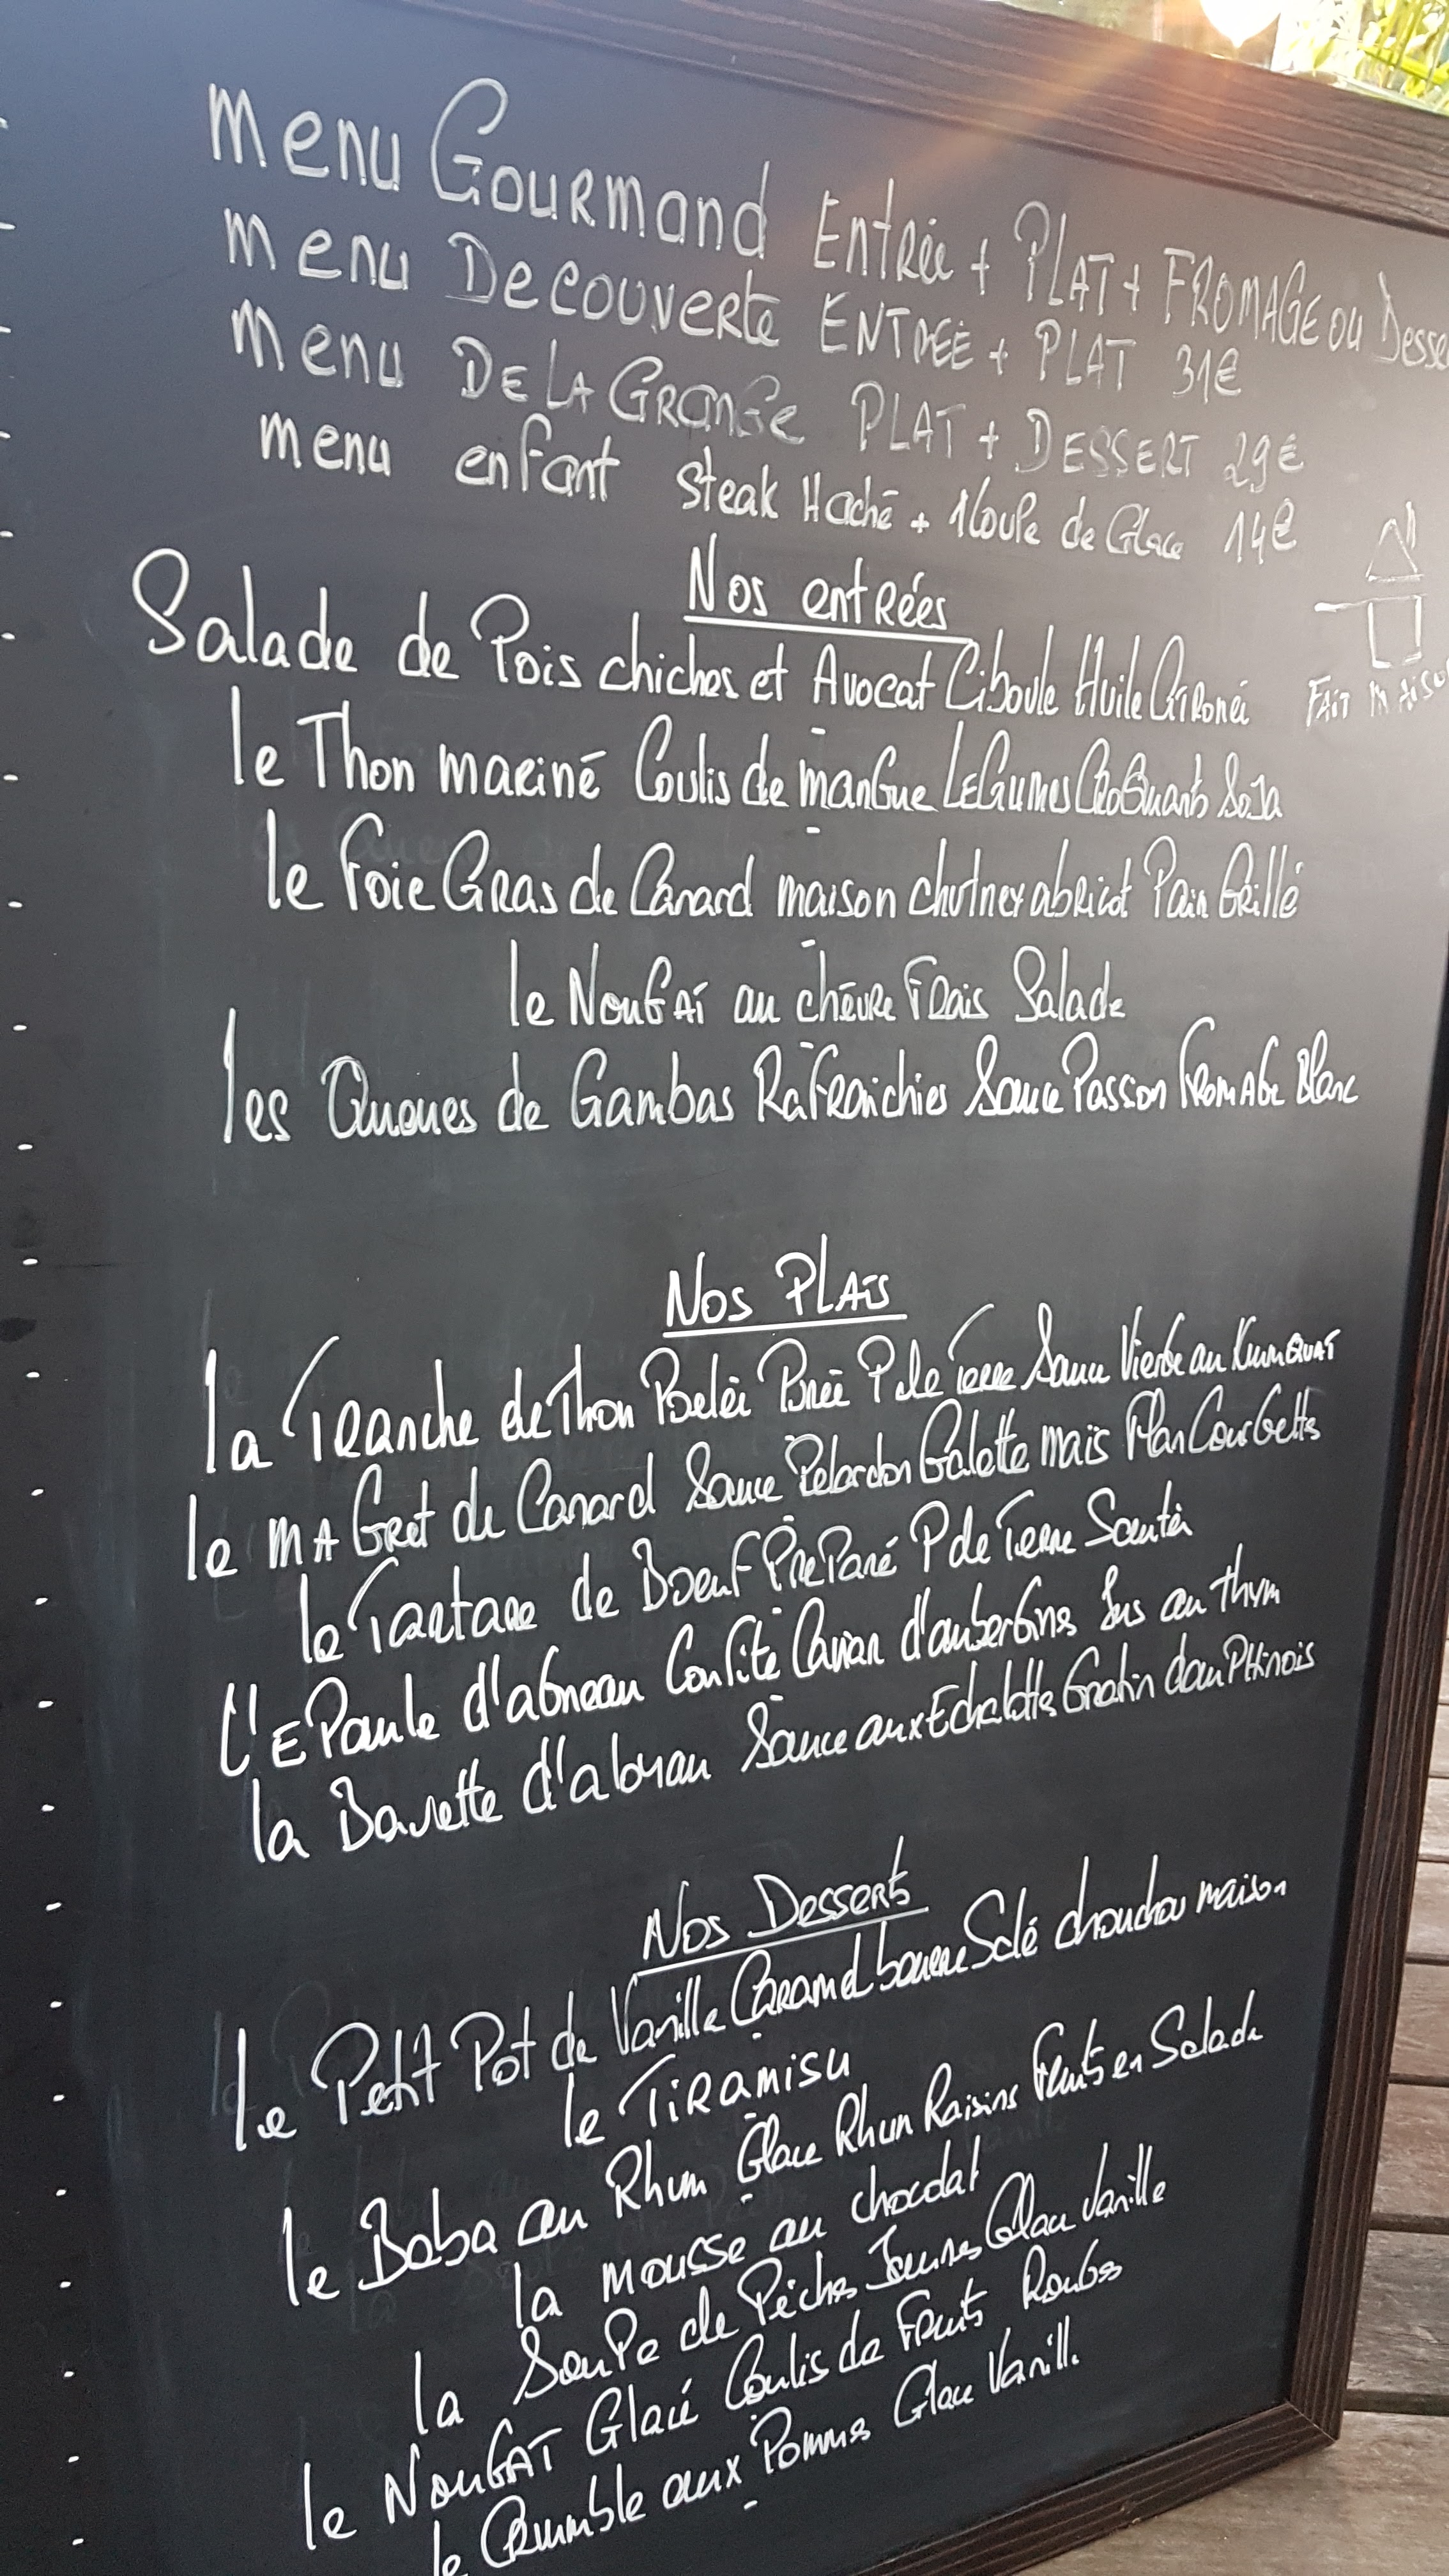 menu Gourmand Entrée + PLAT + FROMAGE ou Desse
menu Decouverte ENTREE + PLAT 31€
menu DE LA GRANGe PLAT + DESSERT 29€
menu enfant Steak Haché + 1 Coupe de Glace 14€
FAIT MAISO
Nos entrées
Salade de Pois chiches et Avocat Ciboule Huile
le Thon mariné Coulis de mangue LEGumes CRoQuants Soja
le Foie Gras de Canard maison chutney abricot Pain Grillé
le NouGAT au chèvre Frais Salade
les Queues de Gambas Rafraichies Sauce Passion FromAGe Blanc
Nos PLATS
la Tranche de Thon Poelée Purée P de Terre Sauce Vierge au KumQUAT
le MAGret de Canard Sauce Pelardon Galette mais Flan Courgette
le Tartare de Boeuf Préparé P de Terre Sautée
L'EPaule d'agneau Confite Caviar d'aubergines Jus au thym
la Bavette d'aloyau Sauce aux Echalotte Gratin dauPhinois
Nos Desserts
le Petit Pot de Vanille Caramel beurre Salé chouchou maison
le TiRamisu
le Baba au Rhum Glace Rhum Raisins Fruits en Salade
la mousse au chocolat
la SouPe de Pêches Jaunes Glace Vanille
le NouGAT Glacé Coulis de Fruits Rouges
le Crumble aux Pommes Glace Vanille